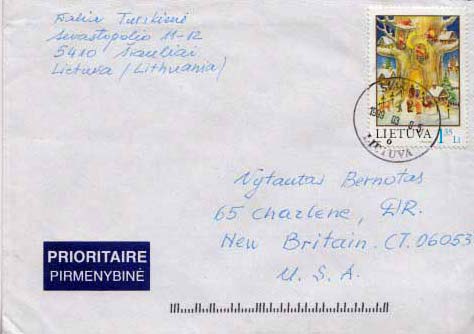 Sevastopolio 11-12
5410 Šiauliai
Lietuva (Lithuania)
LIETUVA 1.35 Lt
1999 03
LIETUVA
Vytautas Bernotas
65 Charlene, DR.
New Britain. CT. 06053
U. S. A.
PRIORITAIRE
PIRMENYBINĖ